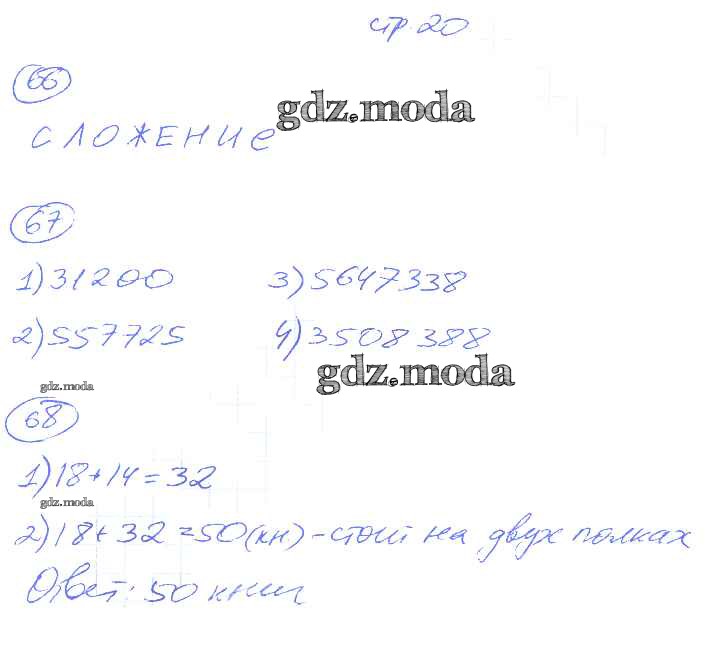 стр. 20
66
gdz.moda
СЛОЖЕНИЕ
67
1) 31200 3) 5647338
2) 557725 4) 3508388
gdz.moda
gdz.moda
68
1) 18+14=32
gdz.moda
2) 18+32=50(кн)-стоит на двух полках
Ответ: 50 книг